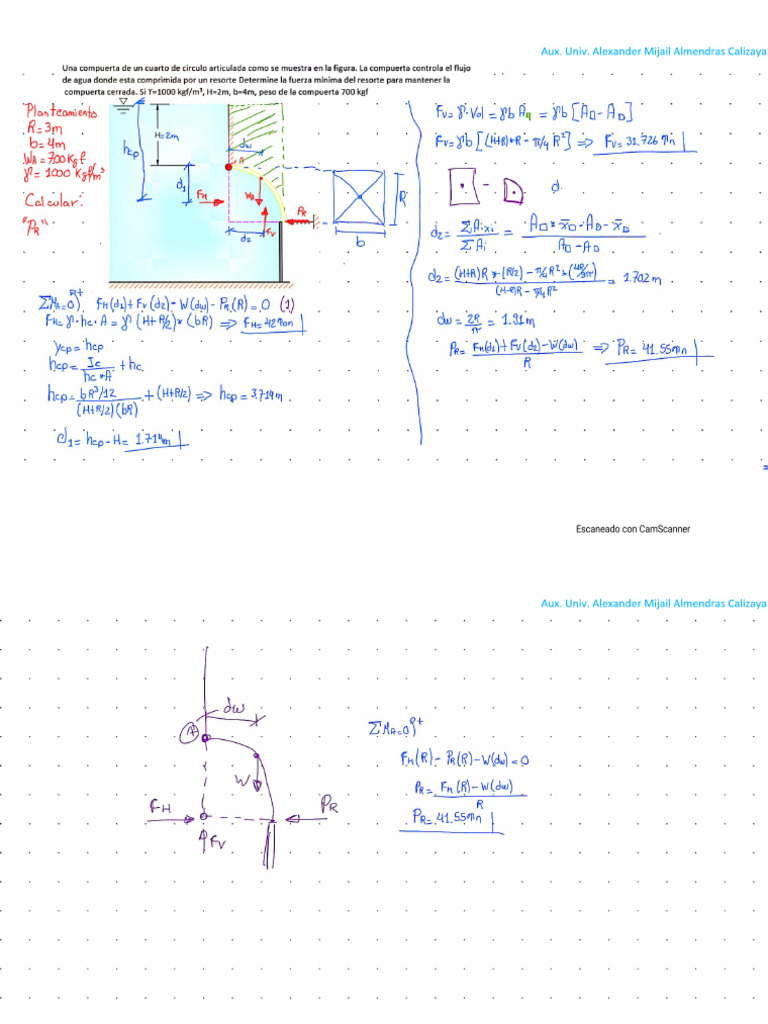 Aux. Univ. Alexander Mijail Almendras Calizaya
Una compuerta de un cuarto de circulo articulada como se muestra en la figura. La compuerta controla el flujo
de agua donde esta comprimida por un resorte Determine la fuerza mínima del resorte para mantener la
compuerta cerrada. Si Υ=1000 kgf/m³, H=2m, b=4m, peso de la compuerta 700 kgf
Planteamiento
R=3m
b=4m
WA=700Kgf
γ=1000 Kgf/m³
Calcular:
"PR"
H=2m
hcp
dw
A
d1
FH
W
PR
FV
d2
R
b
ΣMA=0 R+ FH(d1)+FV(d2)-W(dw)-PR(R)=0 (1)
FH=γ·hc·A=γ(H+R/2)*(bR) ⇒ FH=42Ton
ycp=hcp
hcp=Ic/(hc*A)+hc
hcp=(bR³/12)/((H+R/2)(bR))+(H+R/2)⇒hcp=3.714m
d1=hcp-H=1.714m
FV=γ·Vol=γb AR=γb[A□-AD]
FV=γb[(H+R)*R-π/4 R²]⇒FV=31.726Tn
d2=ΣAi·xi/ΣAi=(A□*x̄□-AD-x̄D)/(A□-AD)
d2=((H+R)R*(R/2)-π/4R²*(4R/3π))/((H+R)R-π/4R²)=1.702m
dw=2R/π=1.91m
PR=(FH(d1)+FV(d2)-W(dw))/R⇒PR=41.55Tn
Escaneado con CamScanner
Aux. Univ. Alexander Mijail Almendras Calizaya
dw
A
W
FH
PR
FV
ΣMA=0 R+
FH(R)-PR(R)-W(dw)=0
PR=(FH(R)-W(dw))/R
PR=41.55Tn